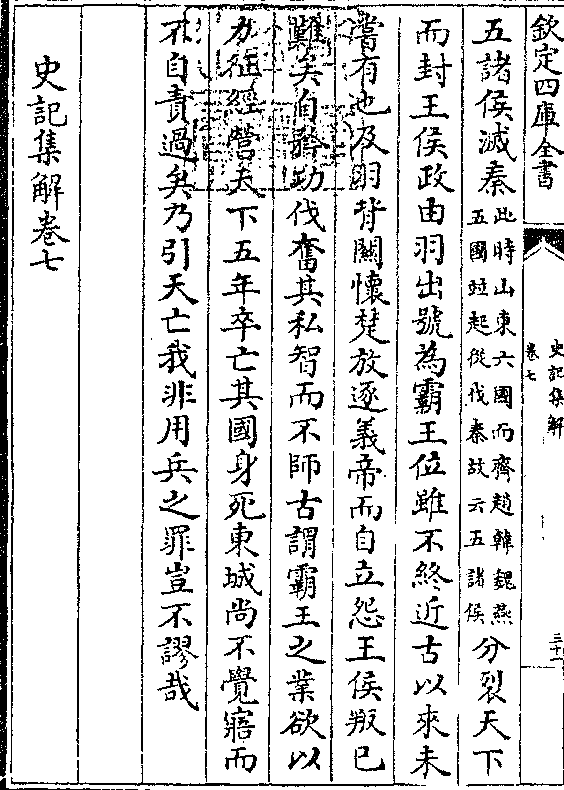 欽定四庫全書
史記集解
卷七
五諸侯滅秦此時山東六國而齊趙韓魏燕五國竝起從伐秦故云五諸侯分裂天下
而封王侯政由羽出號為霸王位雖不終近古以來未
嘗有也及羽背關懷楚放逐義帝而自立怨王侯叛已
難矣自矜功伐奮其私智而不師古謂霸王之業欲以
力征經營天下五年卒亡其國身死東城尚不覺寤而
不自責過矣乃引天亡我非用兵之罪豈不謬哉
史記集解卷七